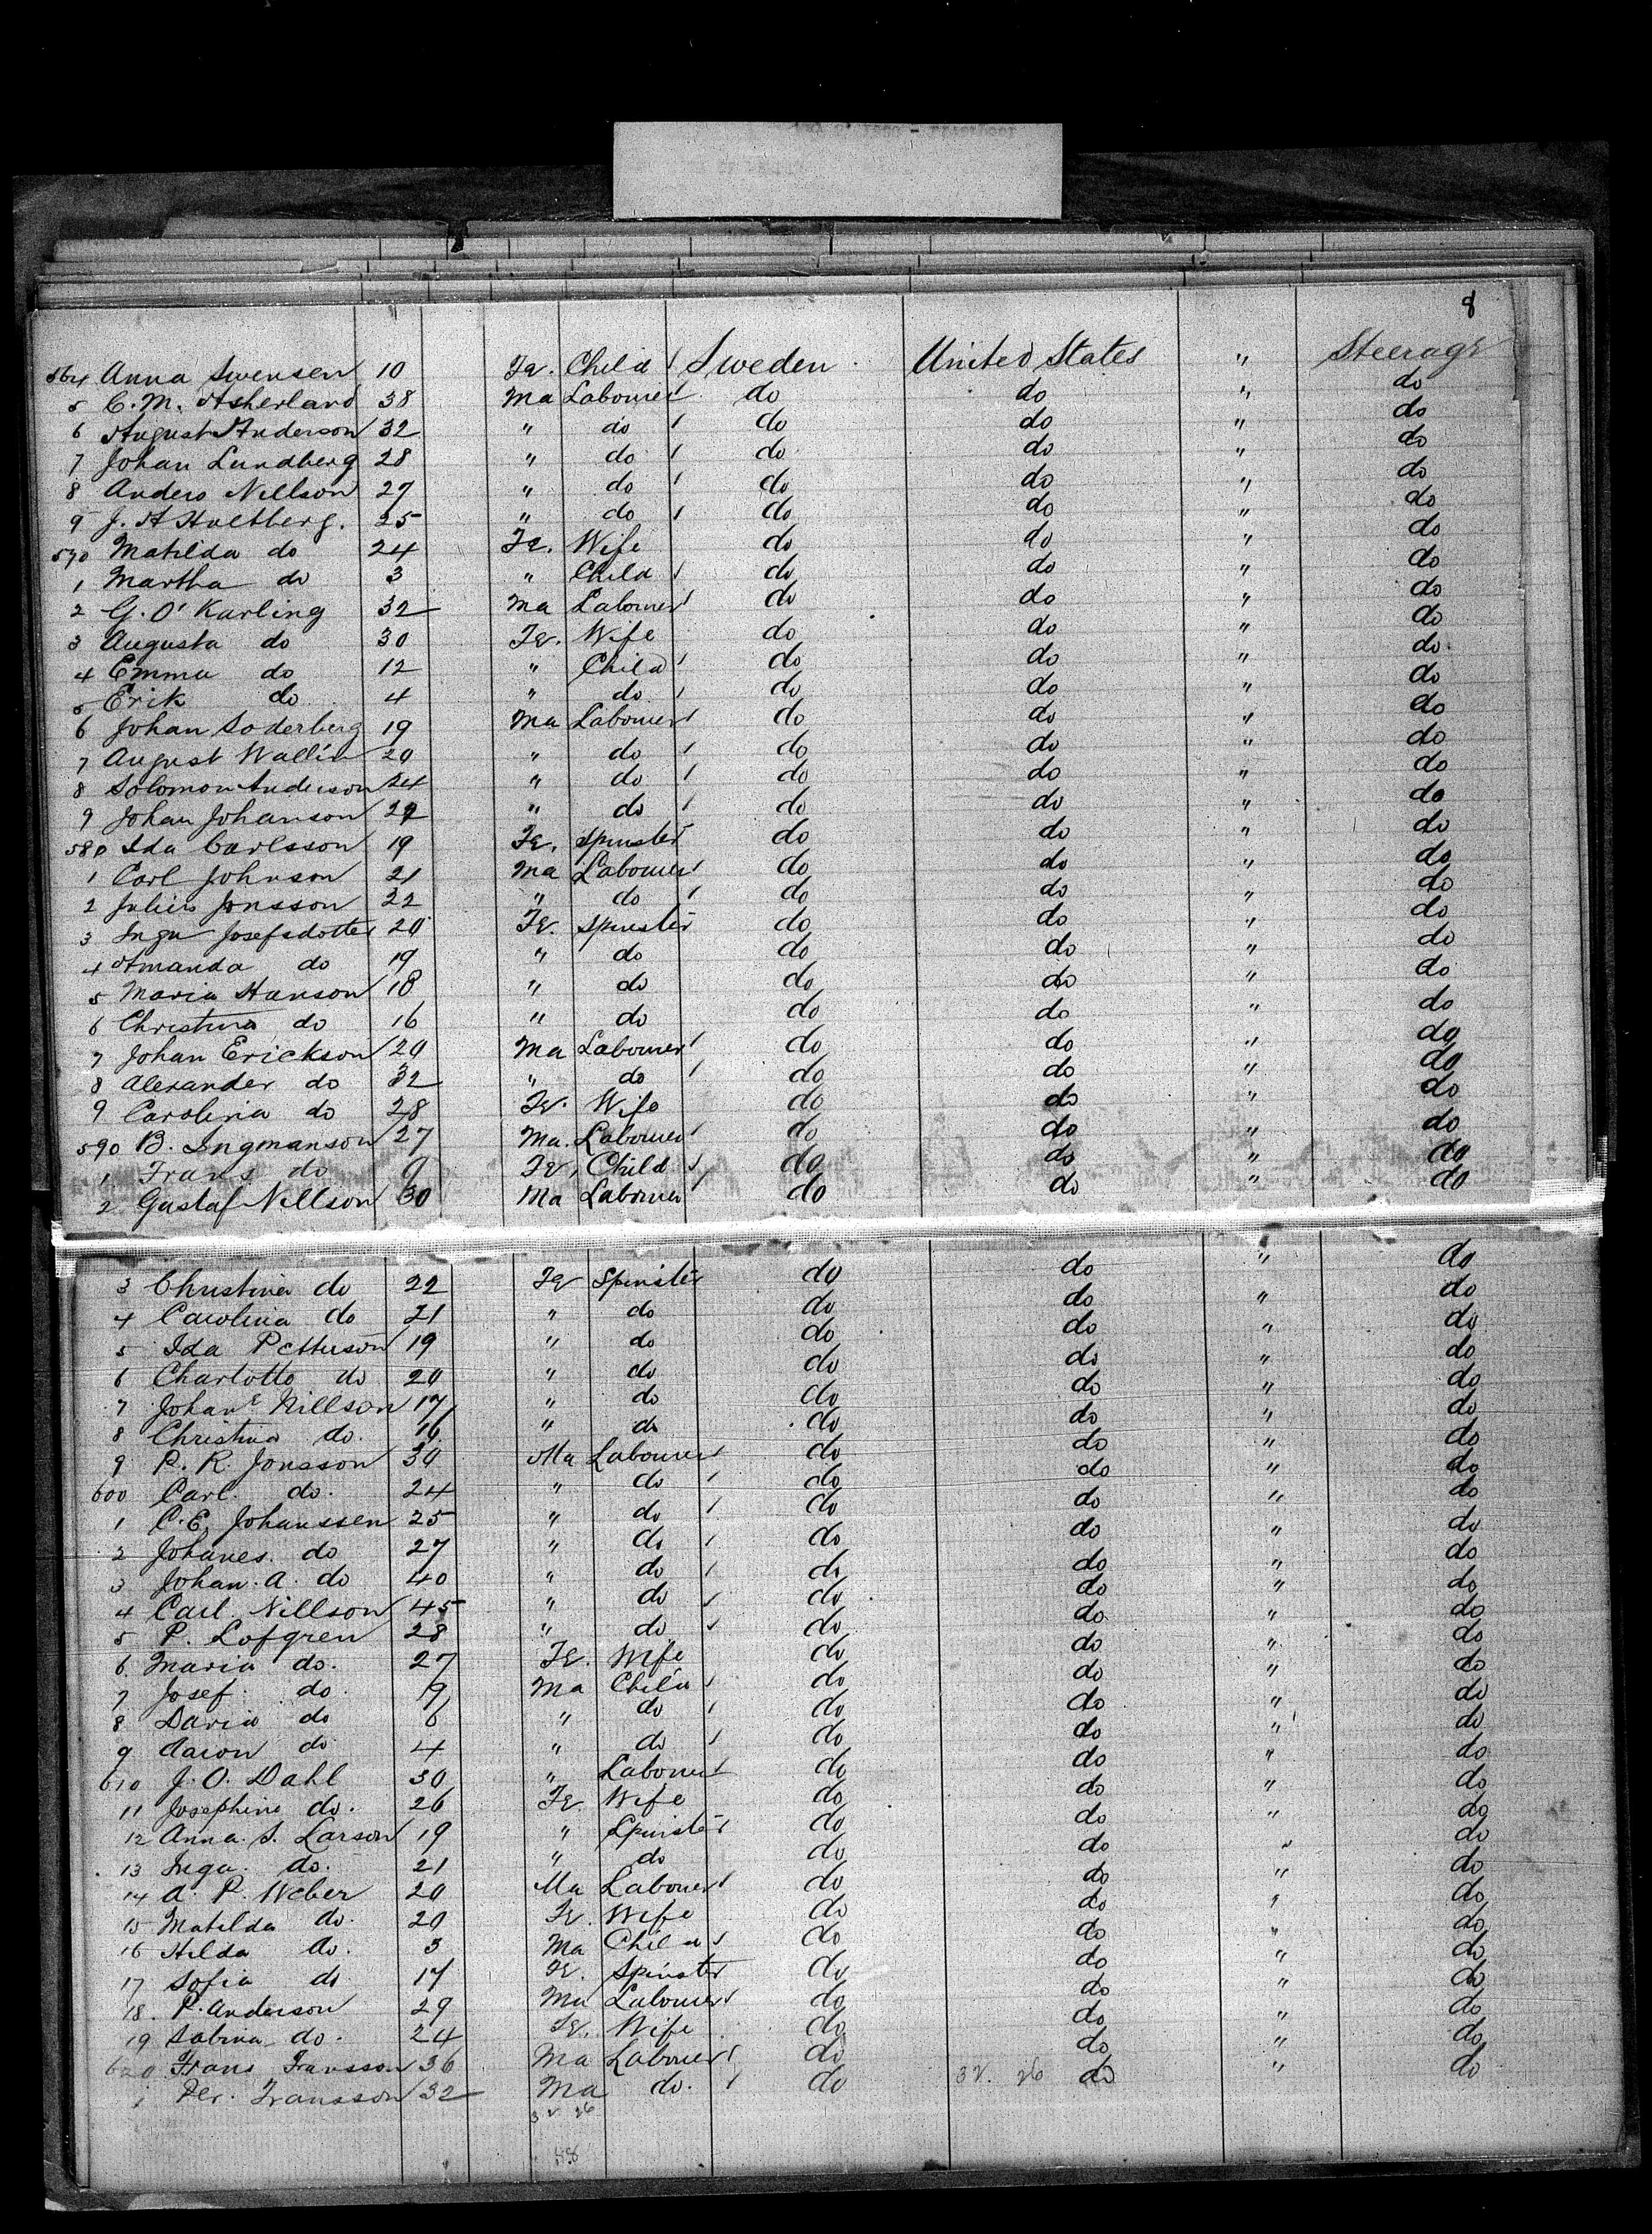 8
564 Anna Swensen 10 Fe. Child Sweden United States " Steerage
5 C. M. Asherland 38 Ma Labourer do do " do
6 August Anderson 32 " do do do " do
7 Johan Lundberg 28 " do do do " do
8 Anders Nillson 27 " do do do " do
9 J. A Hultberg. 25 " do do do " do
570 Matilda do 24 Fe. Wife do do " do
1 Martha do 3 " Child do do " do
2 G. O' Karling 32 Ma Labourer do do " do
3 Augusta do 30 Fe. Wife do do " do
4 Emma do 12 " Child do do " do
5 Erik do 4 " do do do " do
6 Johan Soderberg 19 Ma Labourer do do " do
7 August Wallin 20 " do do do " do
8 Solomon Anderson 24 " do do do " do
9 Johan Johanson " do do do " do
580 Ida Carlsson 19 Fe. Spinster do do " do
1 Carl Johnson 21 Ma Labourer do do " do
2 Julius Jonsson 22 " do do do " do
3 Inga Josefsdotter 20 Fe. Spinster do do " do
4 Amanda do 19 " do do do " do
5 Maria Hanson 18 " do do do " do
6 Christina do 16 " do do do " do
7 Johan Erickson 20 Ma Labourer do do " do
8 Alexander do 32 " do do do " do
9 Carolina do 28 Fe. Wife do do " do
590 B. Ingmanson 27 Ma. Labourer do do " do
1 Frans do 9 Fe, Child do do " do
2 Gustaf Nillson 30 Ma Labourer do do " do
3 Christina do 22 Fe Spinster do do " do
4 Carolina do 21 " do do do " do
5 Ida Petterson 19 " do do do " do
6 Charlotte do 20 " do do do " do
7 Johane Nillson 17 " do do do " do
8 Christina do. 16 " do do do " do
9 P. R. Jonsson 30 Ma Labourer do do " do
600 Carl. do. 24 " do do do " do
1 C. E. Johanssen 25 " do do do " do
2 Johanes. do 27 " do do do " do
3 Johan. A. do 40 " do do do " do
4 Carl. Nillson 45 " do do do " do
5 P. Lofgren 28 " do do do " do
6 Maria do. 27 Fe. Wife do do " do
7 Josef. do. 9 Ma Child do do " do
8 David do 6 " do do do " do
9 Aaron do 4 " do do do " do
610 J. O. Dahl 30 " Labourer do do " do
11 Josephine do. 26 Fe. Wife do do " do
12 Anna. S. Larson 19 " Spinster do do " do
13 Inga. do. 21 " do do do " do
14 A. P. Weber 20 Ma Labourer do do " do
15 Matilda do. 20 Fe. Wife do do " do
16 Hilda do. 3 Ma Child do do " do
17 Sofia do 17 Fe. Spinster do do " do
18. P. Anderson 29 Ma Labourer do do " do
19 Sabina do. 24 Fe. Wife do do " do
620 Frans Fransson 36 Ma Labourer do do " do
1 Per. Fransson 32 Ma do. do 32. 26 do " do
32 26